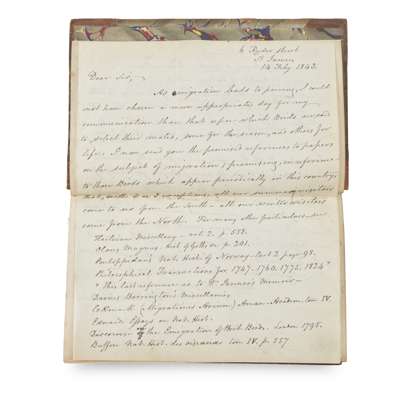 6 Ryder Street
St James
14 Feby 1843.
Dear Sir,
As emigration leads to pairing, I could
not have chosen a more appropriate day for my
communication than that upon which Birds are said
to select their mates, some for the season, and others for
life. I now send you the promised references to papers
on the subject of migration; promising, in reference
to those Birds which appear periodically in this country,
that, with 2 or 3 exceptions, all our summer visitors
come to us from the South - all our winter visitors
come from the North. For many other particulars see
Harleian Miscellany - vol. 2. p. 558.
Olaus Magnus Hist. of Goths p. 201.
Pontoppidan's Nat. Hist. of Norway part 2 page 98.
Philosophical Transactions for 1747. 1760. 1772. 1824 *
* this last reference is to Dr Jenner's Memoir -
Daines Barrington's Miscellanies,
Ekmark (Migrationes Avium) Amœn. Academ. tom IV.
Edwards Essays on Nat. Hist.
Discourse on the Emigration of Brit. Birds. London 1795.
Buffon Nat. Hist. des oiseaux tom IV. p. 557